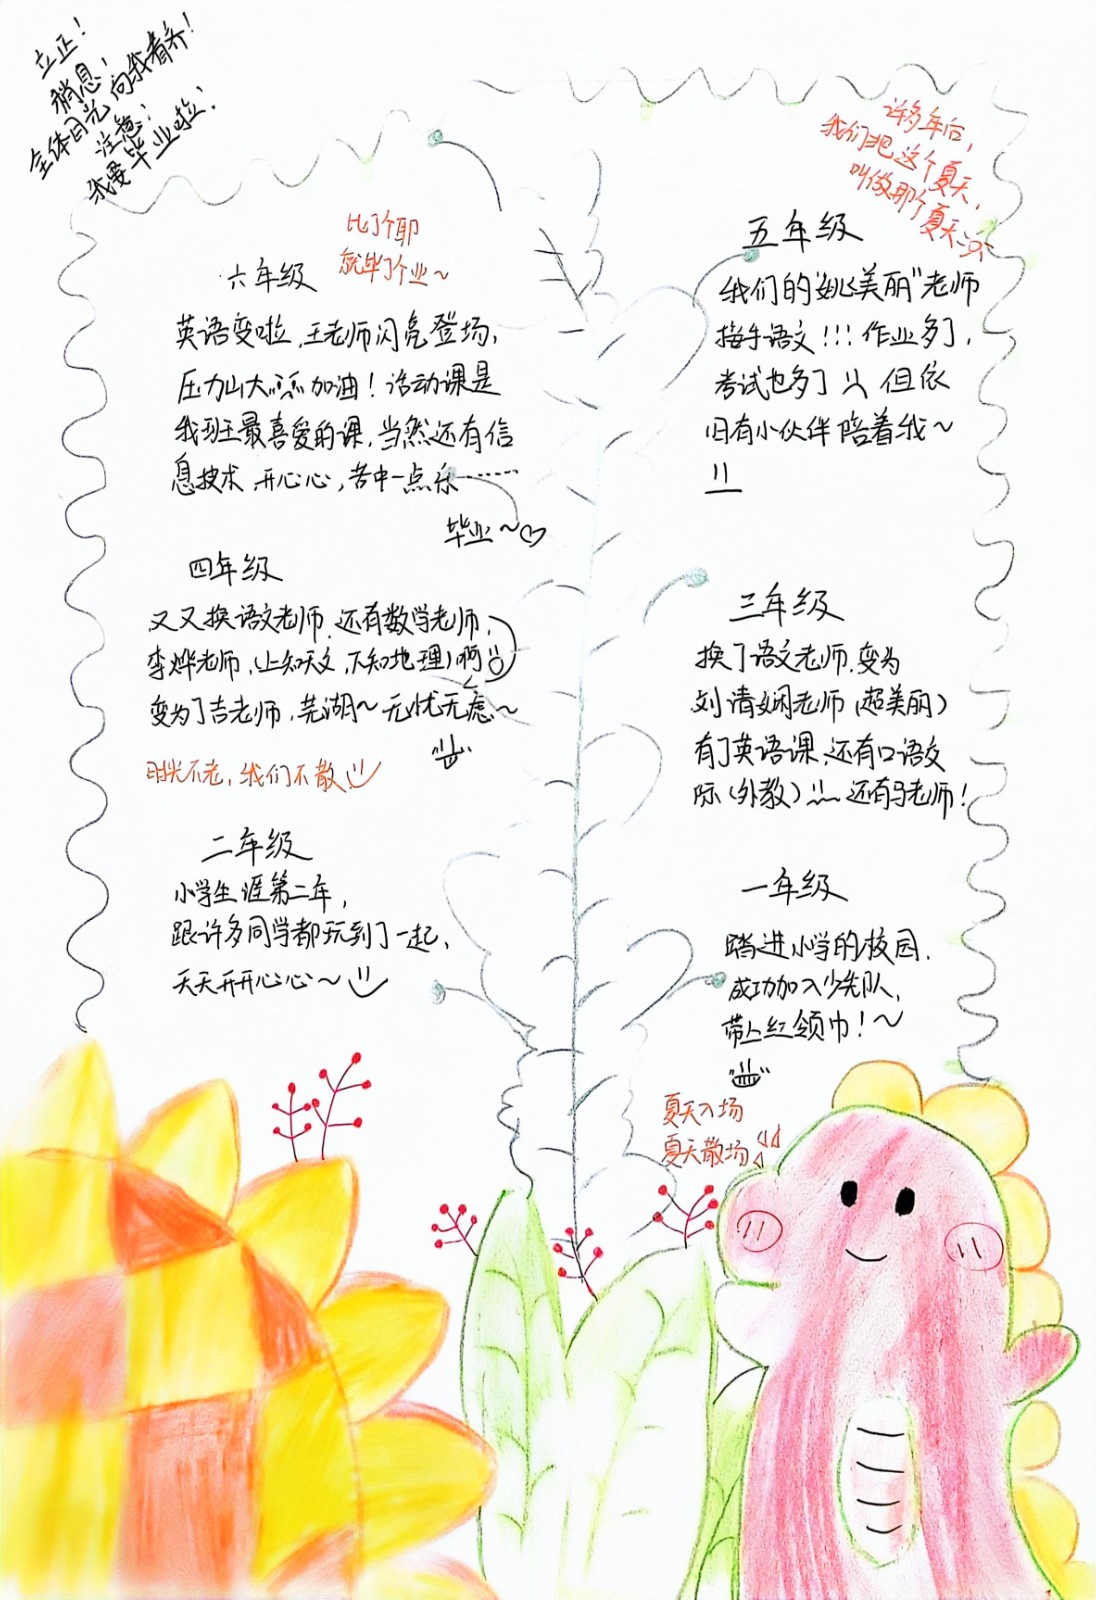 立正！
稍息！
全体目光向我看齐！
注意！
我要毕业啦！
许多年后，
我们把这个夏天，
叫做那个夏天
比了个耶
就毕了个业~
六年级
英语变啦，王老师闪亮登场，
压力山大 加油！活动课是
我班最喜爱的课，当然还有信
息技术，开心心，苦中一点乐……
毕业~♡
五年级
我们的“姚美丽”老师
接手语文！！！作业多了，
考试也多了 但依
旧有小伙伴陪着我~
四年级
又又换语文老师，还有数学老师，
李烨老师，（上知天文，下知地理）啊
变为了吉老师，芜湖~无忧无虑~
时光不老，我们不散
三年级
换了语文老师，变为
刘清娴老师（超美丽）
有了英语课，还有口语交
际（外教） 还有马老师！
二年级
小学生涯第二年，
跟许多同学都玩到了一起，
天天开开心心~
一年级
踏进小学的校园，
成功加入少先队，
带上红领巾！~
夏天入场
夏天散场